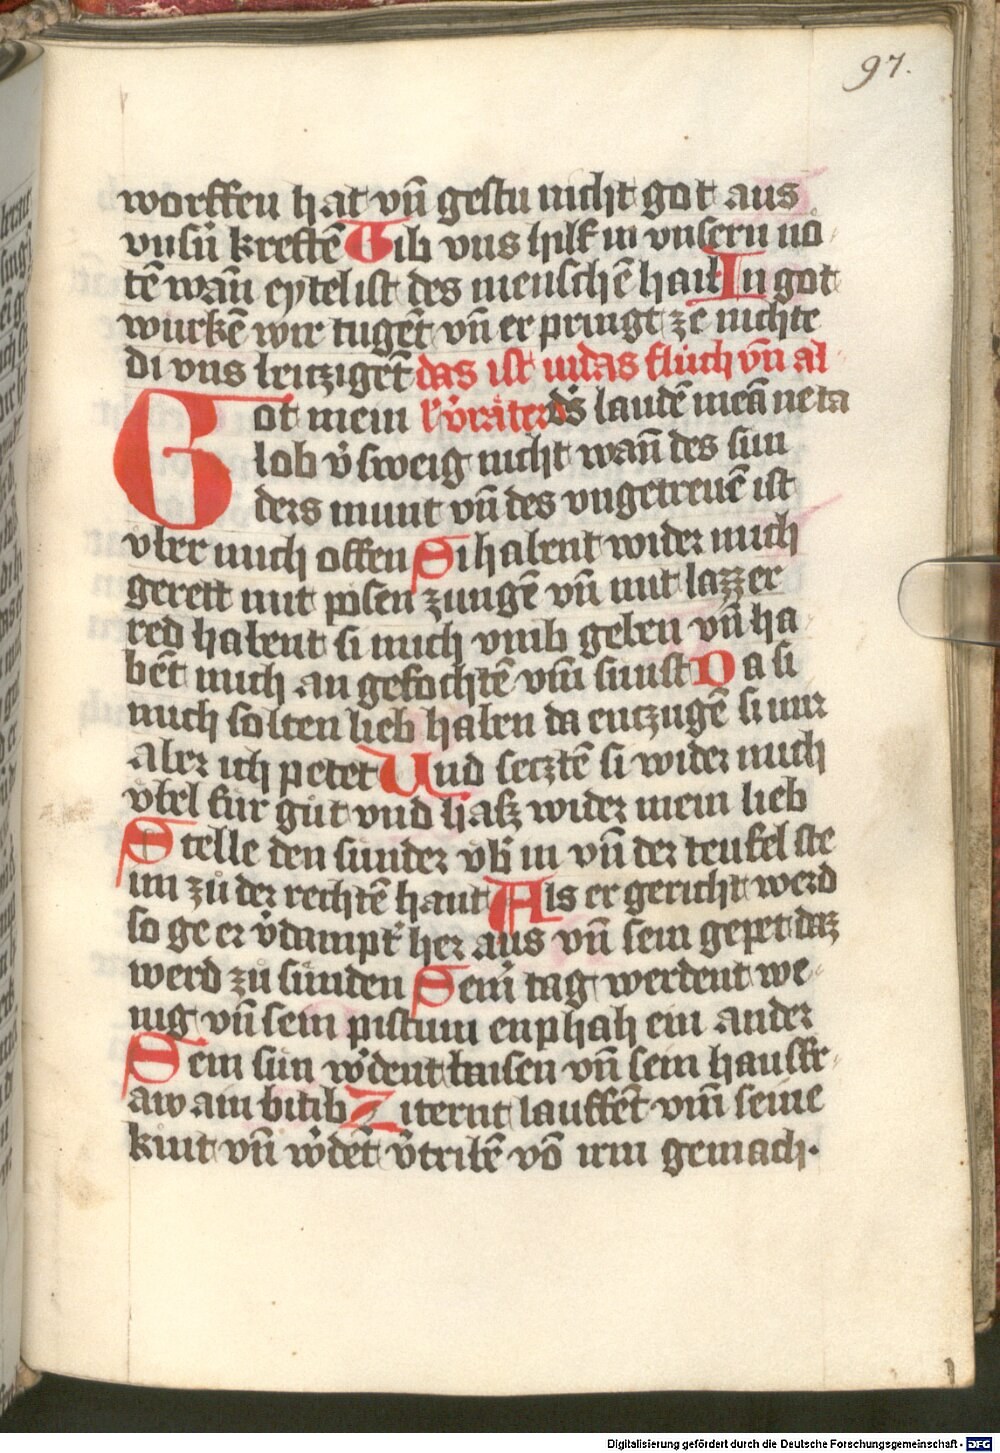 97.
worffen hat vn̄ gestu nicht got aus
vnsn̄ kreftē Gib vns hilf in vnsern nö
tē wan̄ eytel ist des menschē hail In got
wurkē wir tugēt vn̄ er pringt ze nichte
di vns laitzigēt das ist iudas fluch vn̄ al
Got mein l v̄räter ds̄ laudē meā ne ta
lob v̄sweig nicht wan̄ des sun
ders munt vn̄ des vngetrewē ist
vber mich offen Si habent wider mich
gerett mit pösen zungē vn̄ mit lazzer
red habent si mich vmb geben vn̄ ha
bēt mich an gefochtē vm̄ sunst Da si
mich solten lieb haben da entzugē si mir
Aber ich petet Und secztē si wider mich
vbel fur gůt vnd haß wider mein lieb
Stelle den sunder vb̄ in vn̄ der teufel ste
im zů der rechtē hant Als er gericht werd
so ge er v̄dampt her aus vn̄ sein gepet daz
werd zů sünden Sein̄ tag werdent we
nig vn̄ sein pistum enphah ein ander
Sein sün w̄dent waisen vn̄ sein hausfr
aw ain bitib Ziternt lauffēt vm̄ seine
kint vn̄ w̄dēt v̄tribē vō irm gemach.
Digitalisierung gefördert durch die Deutsche Forschungsgemeinschaft - DFG